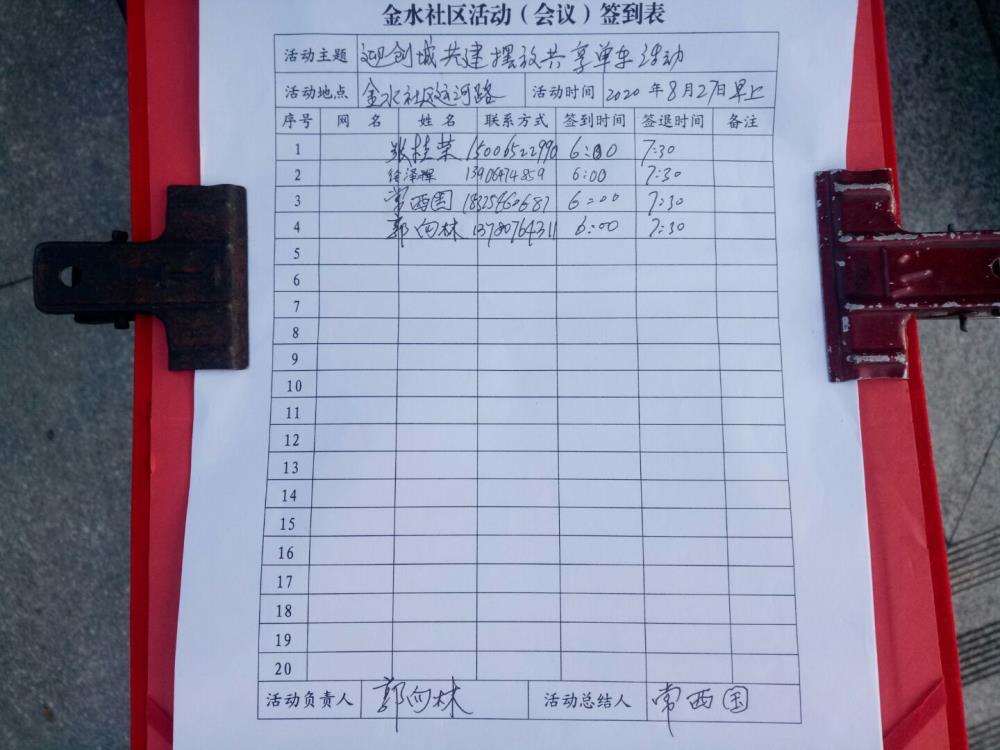 金水社区活动（会议）签到表
活动主题 迎创城共建摆放共享单车活动
活动地点 金水社区运河路 活动时间 2020年8月27日早上
序号 网名 姓名 联系方式 签到时间 签退时间 备注
1 张桂荣 15006522990 6:00 7:30
2 徐泽辉 13906474859 6:00 7:30
3 常西国 6:00 7:30
4 郭向林 13780764311 6:00 7:30
5
6
7
8
9
10
11
12
13
14
15
16
17
18
19
20
活动负责人 郭向林 活动总结人 常西国